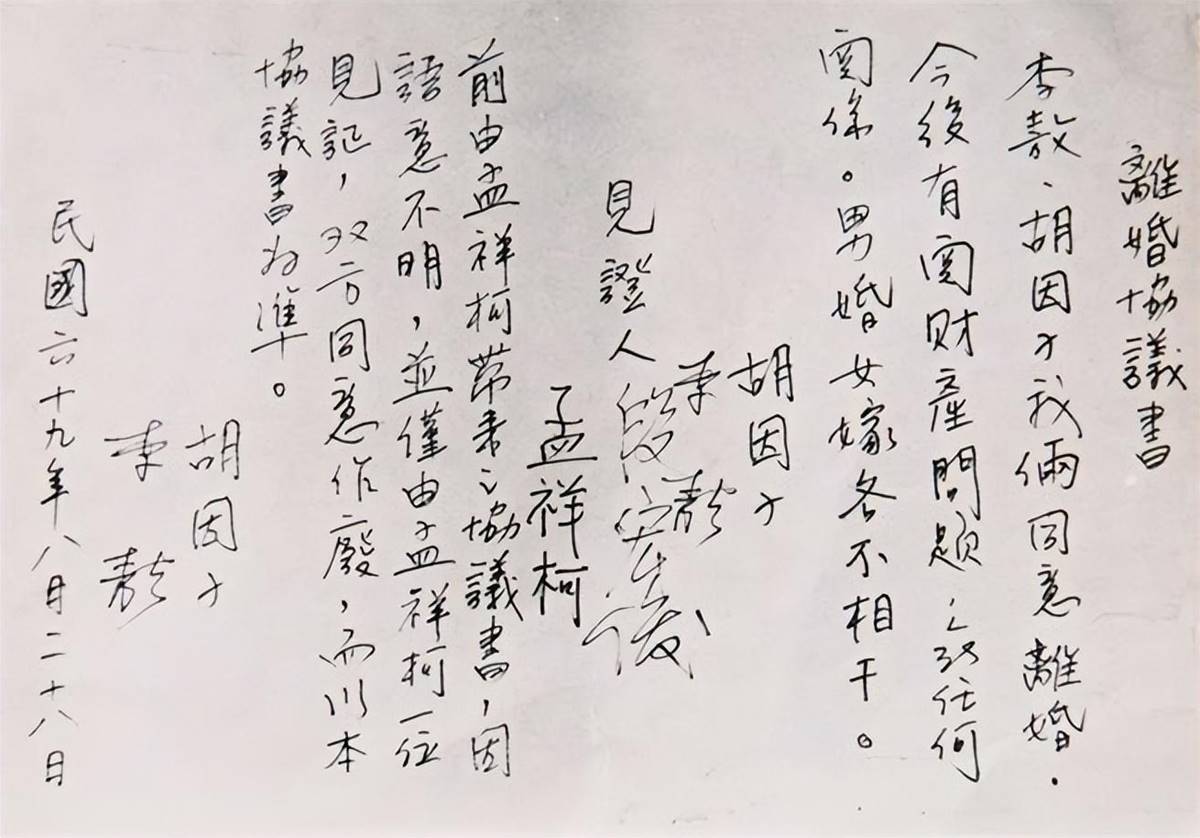 離婚協議書
李敖、胡因子我倆同意離婚.
今後有関財産問題之致任何
関係。男婚女嫁各不相干。
胡因子
李敖
見證人段宏俊
孟祥柯
前由孟祥柯帶来之協議書,因
語意不明,並僅由孟祥柯一位
見証,双方同意作廢,而以本
協議書为準。
胡因子
李敖
民國六十九年八月二十八日